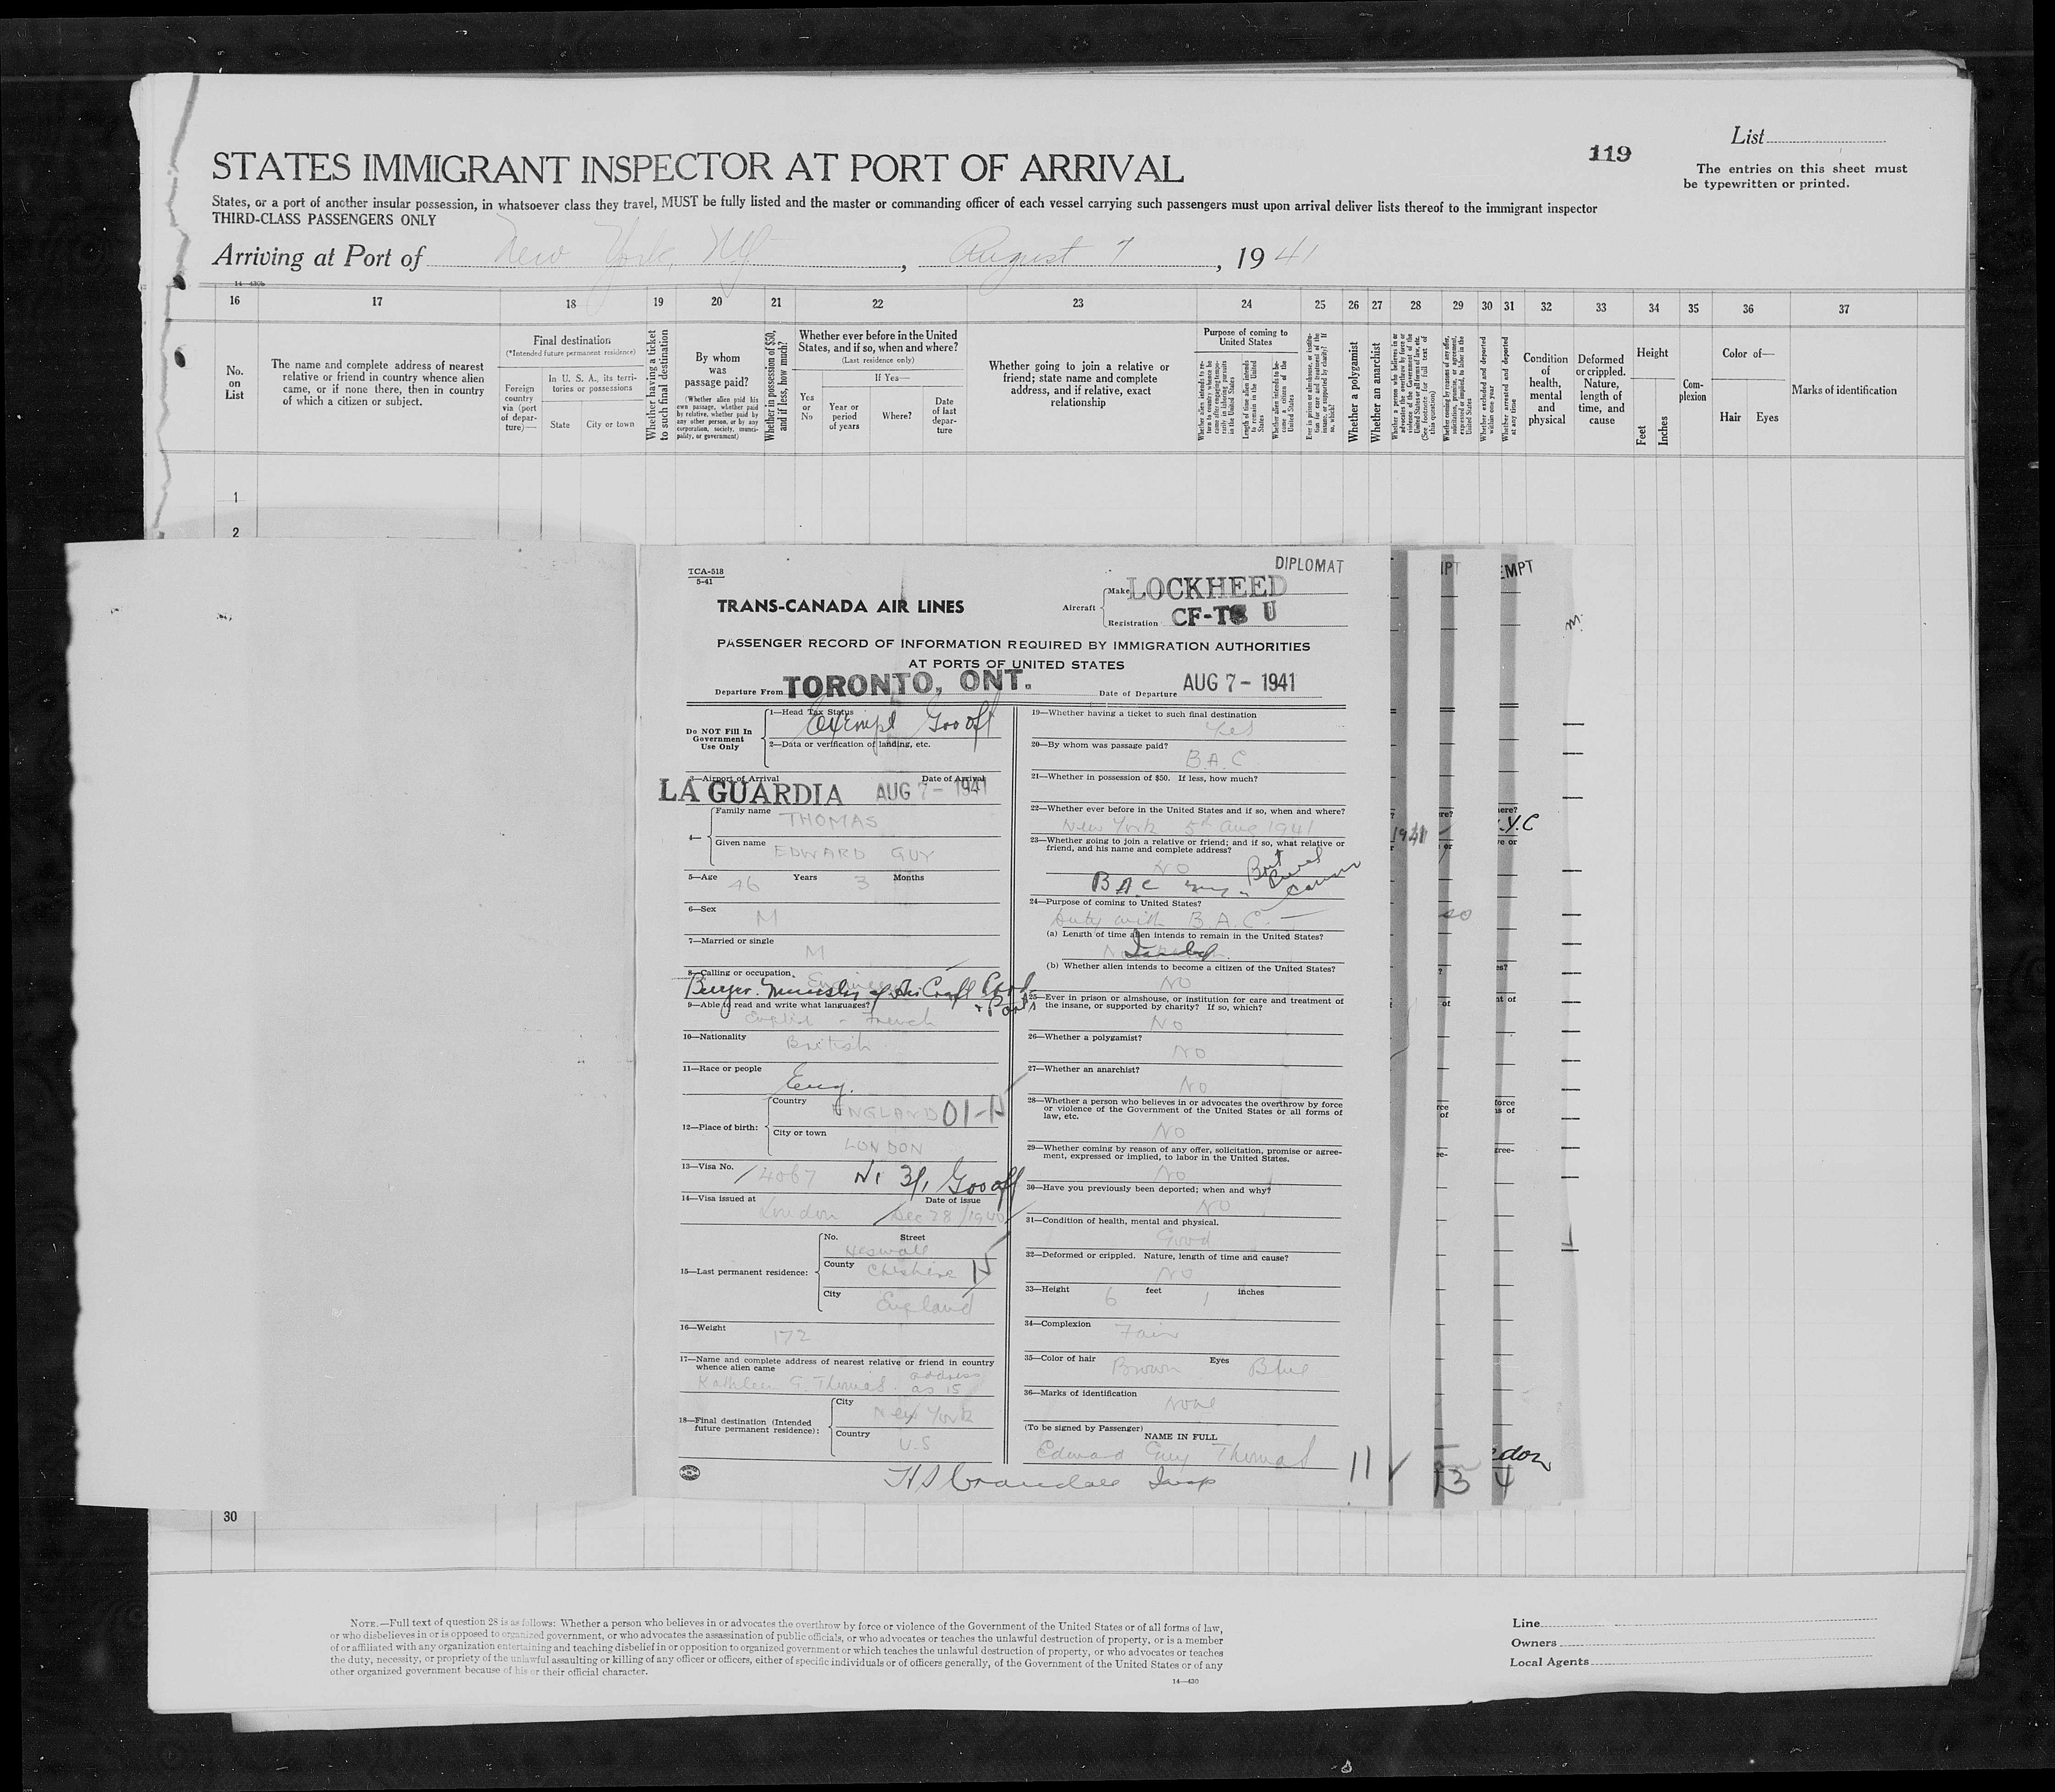 List
119
The entries on this sheet must
be typewritten or printed.
STATES IMMIGRANT INSPECTOR AT PORT OF ARRIVAL
States, or a port of another insular possession, in whatsoever class they travel, MUST be fully listed and the master or commanding officer of each vessel carrying such passengers must upon arrival deliver lists thereof to the immigrant inspector
THIRD-CLASS PASSENGERS ONLY
Arriving at Port of New York, NY, August 7, 1941
16 17 18 19 20 21 22 23 24 25 26 27 28 29 30 31 32 33 34 35 36 37
No.
on
List
The name and complete address of nearest
relative or friend in country whence alien
came, or if none there, then in country
of which a citizen or subject.
Final destination
(*Intended future permanent residence)
Foreign
country
via (port
of depar-
ture)—
In U. S. A., its terri-
tories or possessions
State
City or town
Whether having a ticket
to such final destination
By whom
was
passage paid?
(Whether alien paid his
own passage, whether paid
by relative, whether paid by
any other person, or by any
corporation, society, munici-
pality, or government)
Whether in possession of $50,
and if less, how much?
Whether ever before in the United
States, and if so, when and where?
(Last residence only)
Yes
or
No
If Yes—
Year or
period
of years
Where?
Date
of last
depar-
ture
Whether going to join a relative or
friend; state name and complete
address, and if relative, exact
relationship
Purpose of coming to
United States
Whether a polygamist
Whether an anarchist
Condition
of
health,
mental
and
physical
Deformed
or crippled.
Nature,
length of
time, and
cause
Height
Feet
Inches
Com-
plexion
Color of—
Hair
Eyes
Marks of identification
1
2
TCA-518
5-41
DIPLOMAT
TRANS-CANADA AIR LINES
Aircraft
Make LOCKHEED
Registration CF-TC U
PASSENGER RECORD OF INFORMATION REQUIRED BY IMMIGRATION AUTHORITIES
AT PORTS OF UNITED STATES
Departure From TORONTO, ONT.
Date of Departure AUG 7- 1941
Do NOT Fill In
Government
Use Only
1—Head Tax Status
Exempt Gov off
2—Data or verification of landing, etc.
3—Airport of Arrival
Date of Arrival
LA GUARDIA AUG 7- 1941
4—
Family name THOMAS
Given name EDWARD GUY
5—Age 46 Years 3 Months
6—Sex
M
7—Married or single
M
8—Calling or occupation.
Buyer. Ministry of Air Craft Prod
9—Able to read and write what languages?
English - French
10—Nationality
British
11—Race or people
Eng.
12—Place of birth:
Country ENGLAND
City or town
LONDON
13—Visa No.
4067 Gov off
14—Visa issued at
Date of issue
London Dec 28/1940
15—Last permanent residence:
No. Street
Heswall
County Cheshire
City England
16—Weight
172
17—Name and complete address of nearest relative or friend in country
whence alien came
Kathleen G. Thomas. address
as 15
18—Final destination (Intended
future permanent residence):
City
New York
Country
U.S
19—Whether having a ticket to such final destination
Yes
20—By whom was passage paid?
B.A.C
21—Whether in possession of $50. If less, how much?
22—Whether ever before in the United States and if so, when and where?
New York 5th Aug 1941
23—Whether going to join a relative or friend; and if so, what relative or
friend, and his name and complete address?
NO
BAC
24—Purpose of coming to United States?
Duty with B.A.C.
(a) Length of time alien intends to remain in the United States?
(b) Whether alien intends to become a citizen of the United States?
NO
25—Ever in prison or almshouse, or institution for care and treatment of
the insane, or supported by charity? If so, which?
No
26—Whether a polygamist?
NO
27—Whether an anarchist?
No
28—Whether a person who believes in or advocates the overthrow by force
or violence of the Government of the United States or all forms of
law, etc.
No
29—Whether coming by reason of any offer, solicitation, promise or agree-
ment, expressed or implied, to labor in the United States.
No
30—Have you previously been deported; when and why?
NO
31—Condition of health, mental and physical.
Good
32—Deformed or crippled. Nature, length of time and cause?
NO
33—Height 6 feet 1 inches
34—Complexion
Fair
35—Color of hair Brown Eyes Blue
36—Marks of identification
None
(To be signed by Passenger)
NAME IN FULL
Edward Guy Thomas
H S Crandall Insp
11
13
4
30
NOTE.—Full text of question 28 is as follows: Whether a person who believes in or advocates the overthrow by force or violence of the Government of the United States or of all forms of law,
or who disbelieves in or is opposed to organized government, or who advocates the assassination of public officials, or who advocates or teaches the unlawful destruction of property, or is a member
of or affiliated with any organization entertaining and teaching disbelief in or opposition to organized government or which teaches the unlawful destruction of property, or who advocates or teaches
the duty, necessity, or propriety of the unlawful assaulting or killing of any officer or officers, either of specific individuals or of officers generally, of the Government of the United States or of any
other organized government because of his or their official character.
14—430
Line
Owners
Local Agents